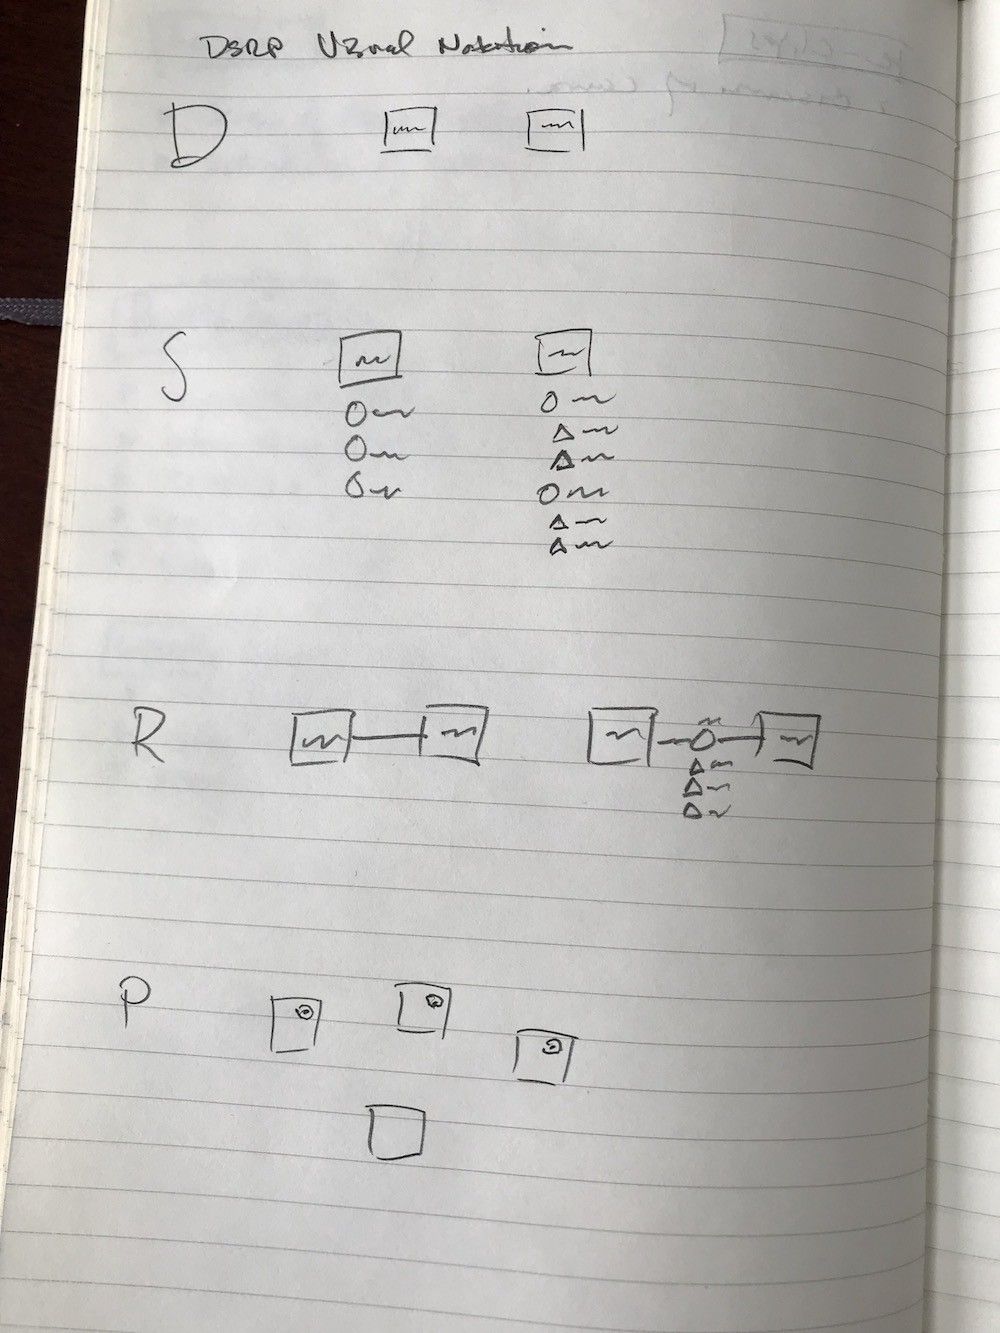 DSRP Visual Notation
D
S
R
P